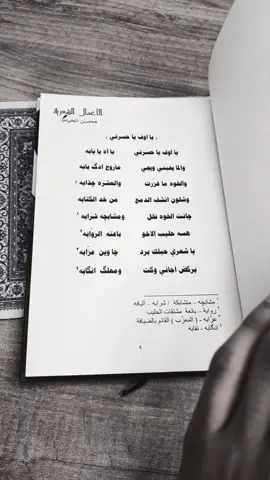 الأعمال الشعرية
محسن الخياط
( يا اوف يا حسرتي )
يا اوف يا حسرتي يا اه يا يابه
والما يحبني ويجي ماروح ادگ بابه
والخوه ما غزرت والعشره چذابه
وشلون انشف الدمع من خد الكتابه
چانت الخوه نخل ومشابچه شرابه ١
هسه حليب الاخو باعته الروابه ٢
يا شعري حيلك برد چا وين عزابه ٣
يركض اجاني وكت ومعلگ انگابه ٤
١ مشابچه - متشابكة / شرابه - اليافه
٢ روابة - بائعة مشتقات الحليب
٣ عزابه - ( المعزب ) القائم بالضيافة
٤ انگابه - نقابه
٩